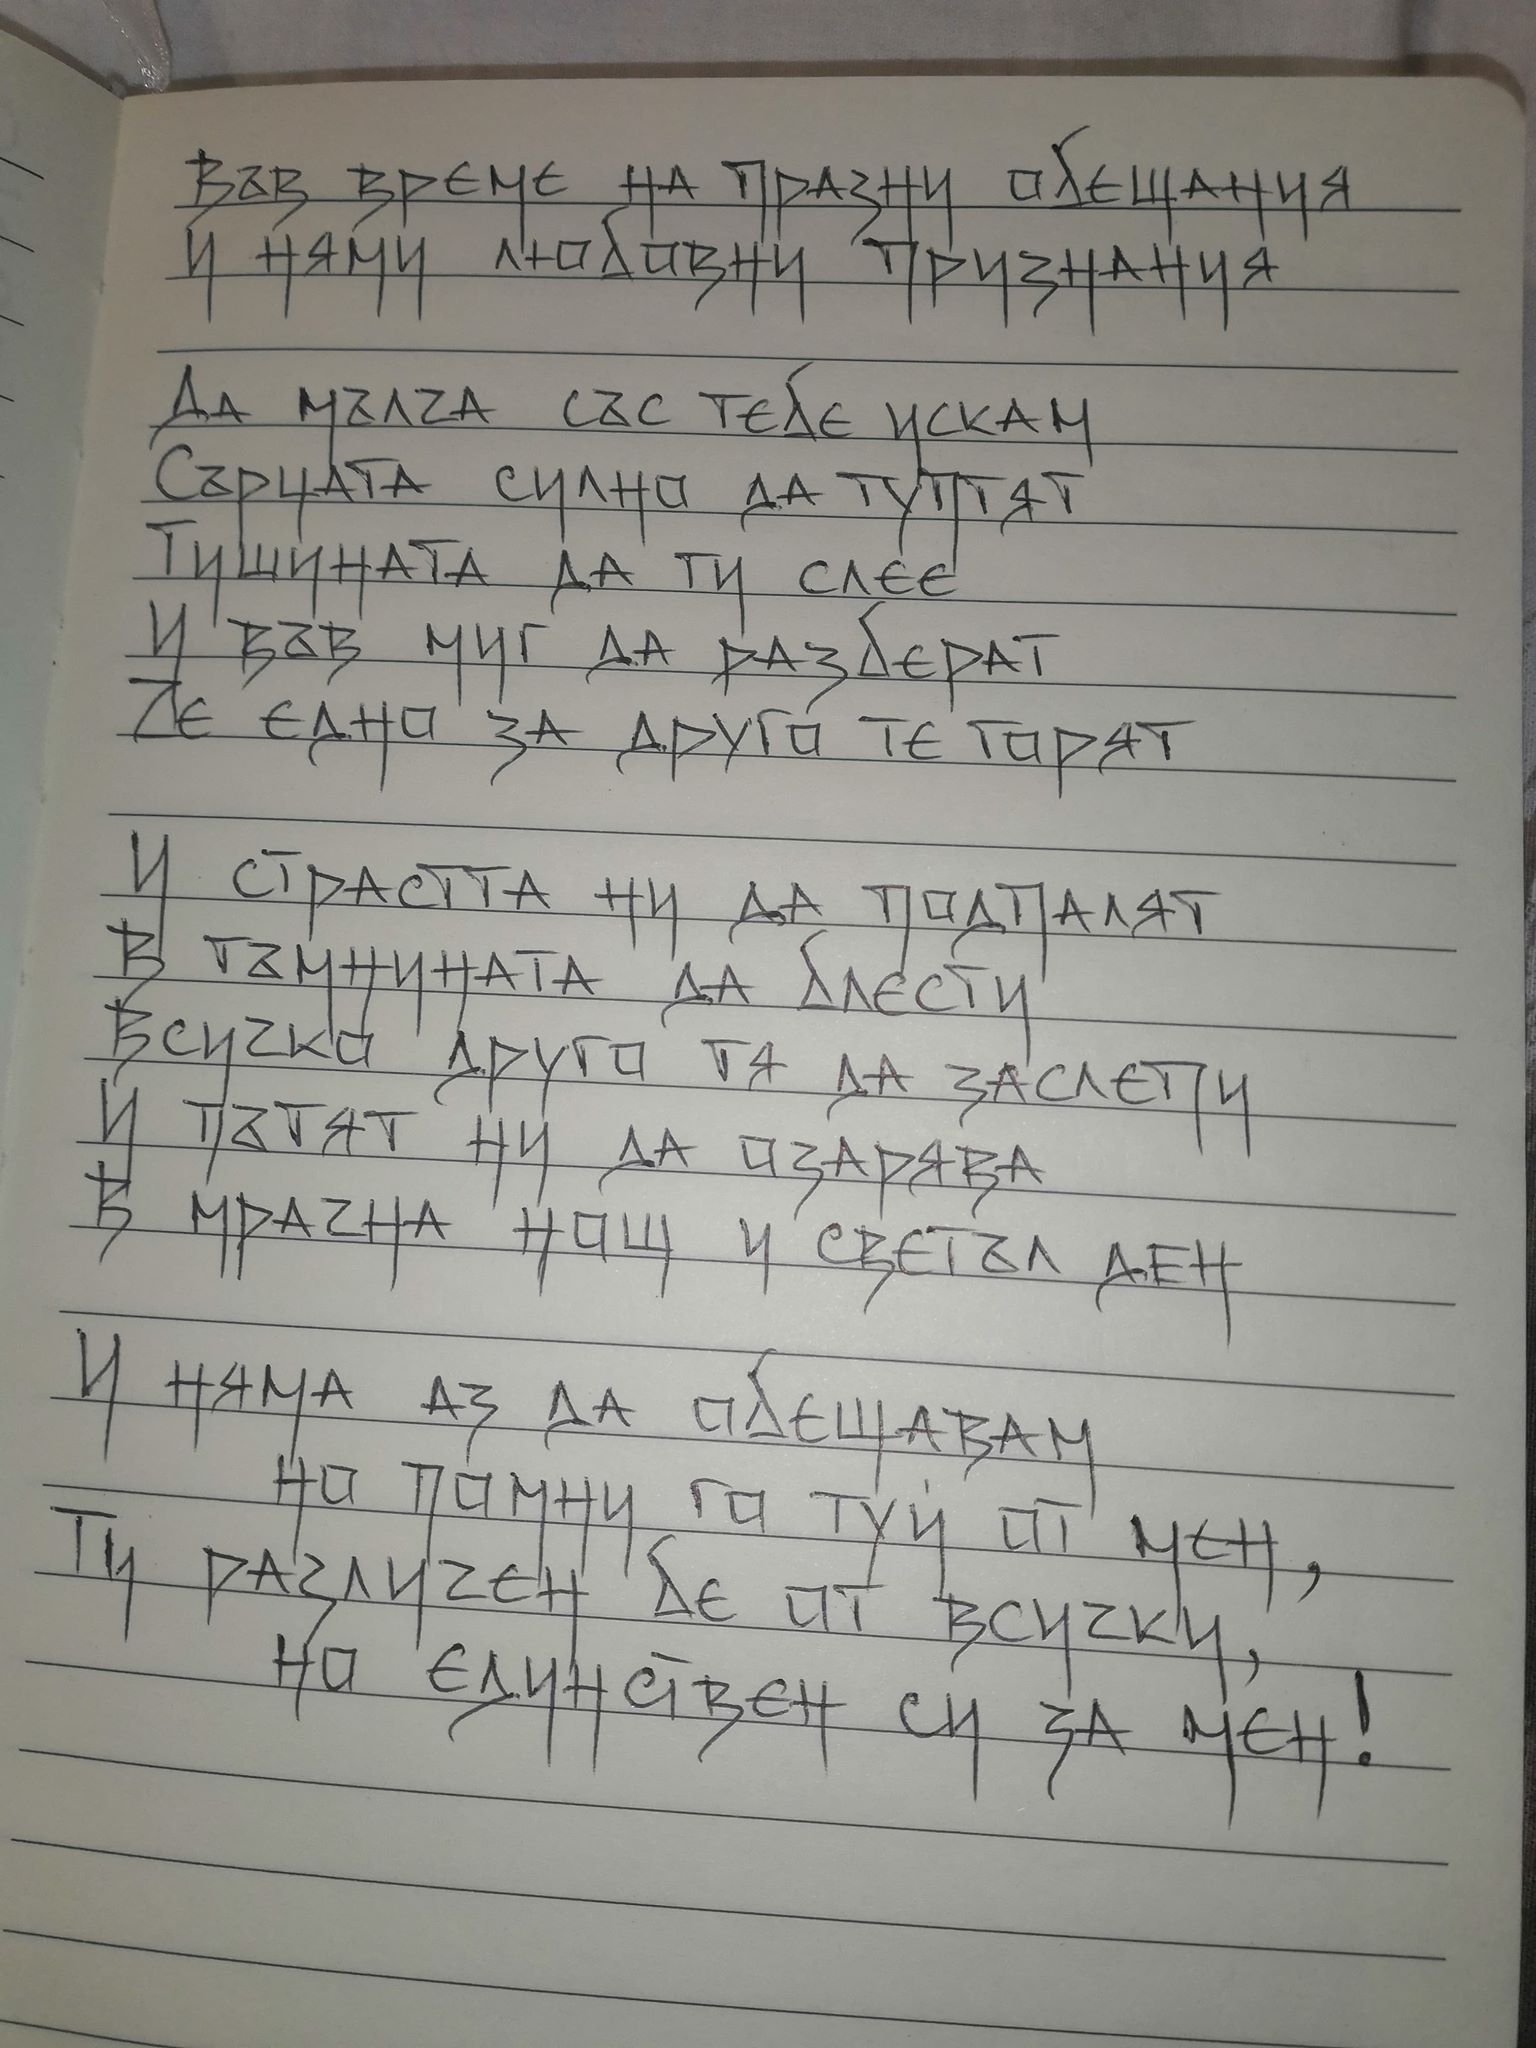 Във време на празни обещания
И нями любовни признания
Да мълча със тебе искам
Сърцата силно да туптят
Тишината да ги слее
И във миг да разберат
Че едно за друго те горят
И страстта ни да подпалят
В тъмнината да блести
Всичко друго тя да заслепи
И пътят ни да озарява
В мрачна нощ и светъл ден
И няма аз да обещавам
но помни го туй от мен,
Ти различен бе от всички,
но единствен си за мен!